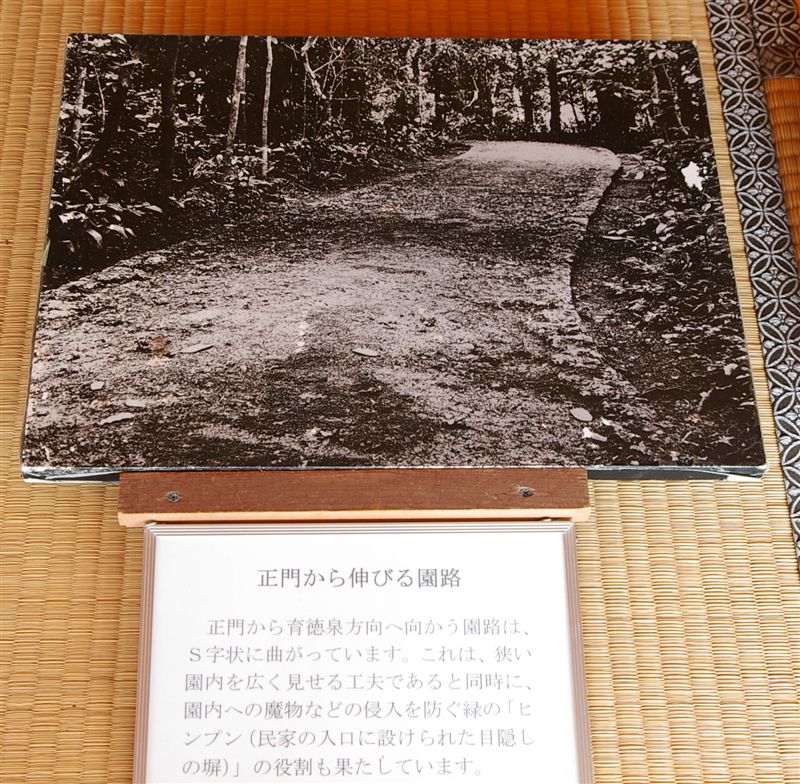 正門から伸びる園路
正門から育徳泉方向へ向かう園路は、
Ｓ字状に曲がっています。これは、狭い
園内を広く見せる工夫であると同時に、
園内への魔物などの侵入を防ぐ緑の「ヒ
ンプン（民家の入口に設けられた目隠し
の塀）」の役割も果たしています。